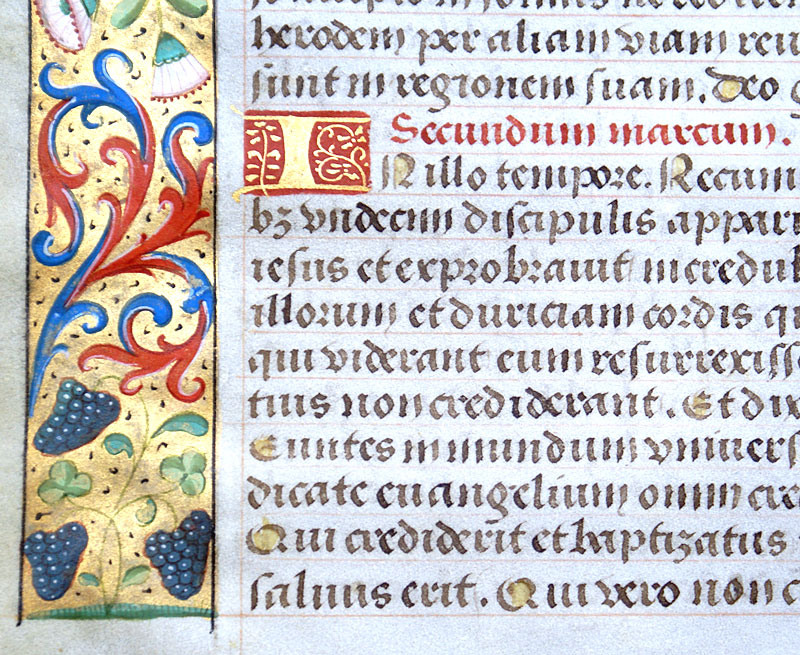 herodem per aliam viam reu
sunt in regionem suam. Deo g
Secundum marcum.
IN illo tempore. Recum
bz vndecim discipulis appari
iesus et exprobrauit incredul
illorum et duriciam cordis qu
qui viderant eum resurrexiss
tius non crediderant. Et dix
Euntes in mundum vniuers
dicate euangelium omni cre
Qui crediderit et baptizatus
saluus erit. Qui vero non c